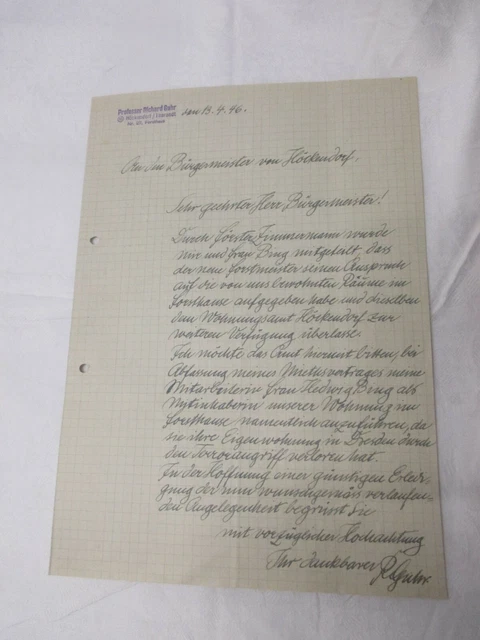 Professor Richard Guhr
Höckendorf
den 13.4.46.
An den Bürgermeister von Höckendorf.
Sehr geehrter Herr Bürgermeister!
Durch Förster Zimmermann wurde
mir und Frau Bing mitgeteilt, dass
der neue Forstmeister seinen Anspruch
auf die von uns bewohnten Räume im
Forsthause aufgegeben habe und dieselben
dem Wohnungsamt Höckendorf zur
weiteren Verfügung überlasse.
Ich möchte das Amt hiermit bitten, bei
Abfassung meines Mietsvertrages meine
Mitarbeiterin Frau Hedwig Bing als
Mitinhaberin unserer Wohnung im
Forsthause namentlich anzuführen, da
sie ihre Eigenwohnung in Dresden durch
den Terrorangriff verloren hat.
In der Hoffnung einer günstigen Erledi-
gung der nun wunschgemäss verlaufen-
den Angelegenheit begrüsst Sie
mit vorzüglicher Hochachtung
Ihr dankbarer R. Guhr.